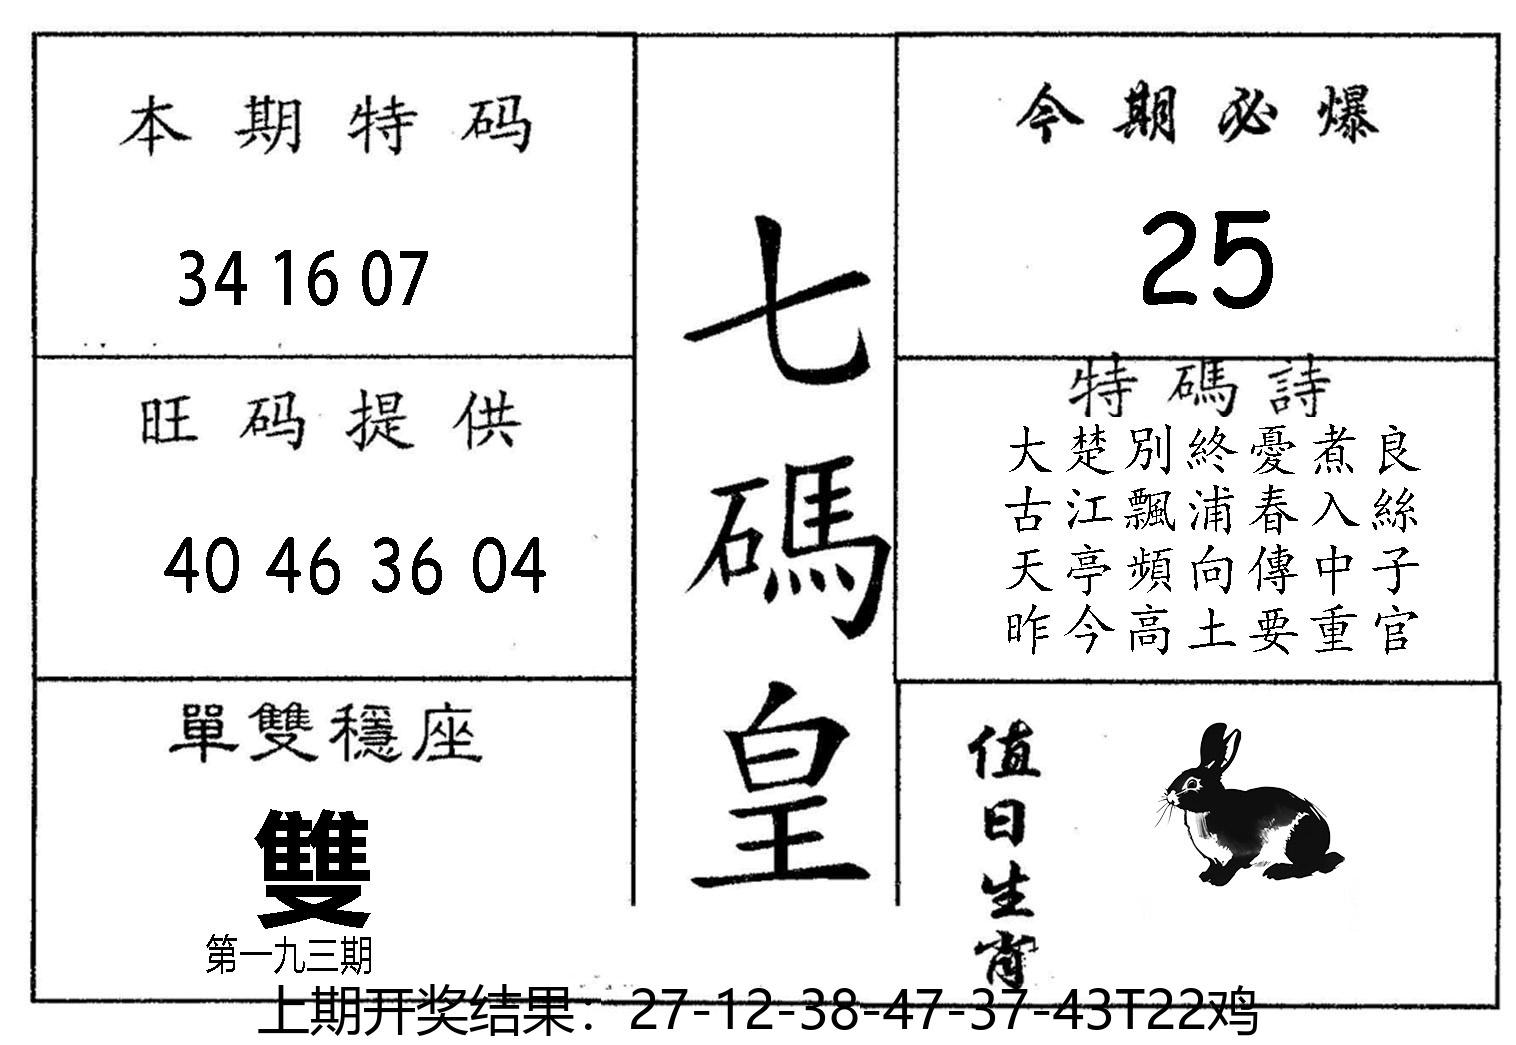 本期特码
34 16 07
旺码提供
40 46 36 04
單雙穩座
雙
第一九三期
七碼皇
今期必爆
25
特碼詩
大楚別終憂煮良
古江飄浦春入絲
天亭頻向傳中子
昨今高土要重官
值日生肖
上期开奖结果：27-12-38-47-37-43T22鸡